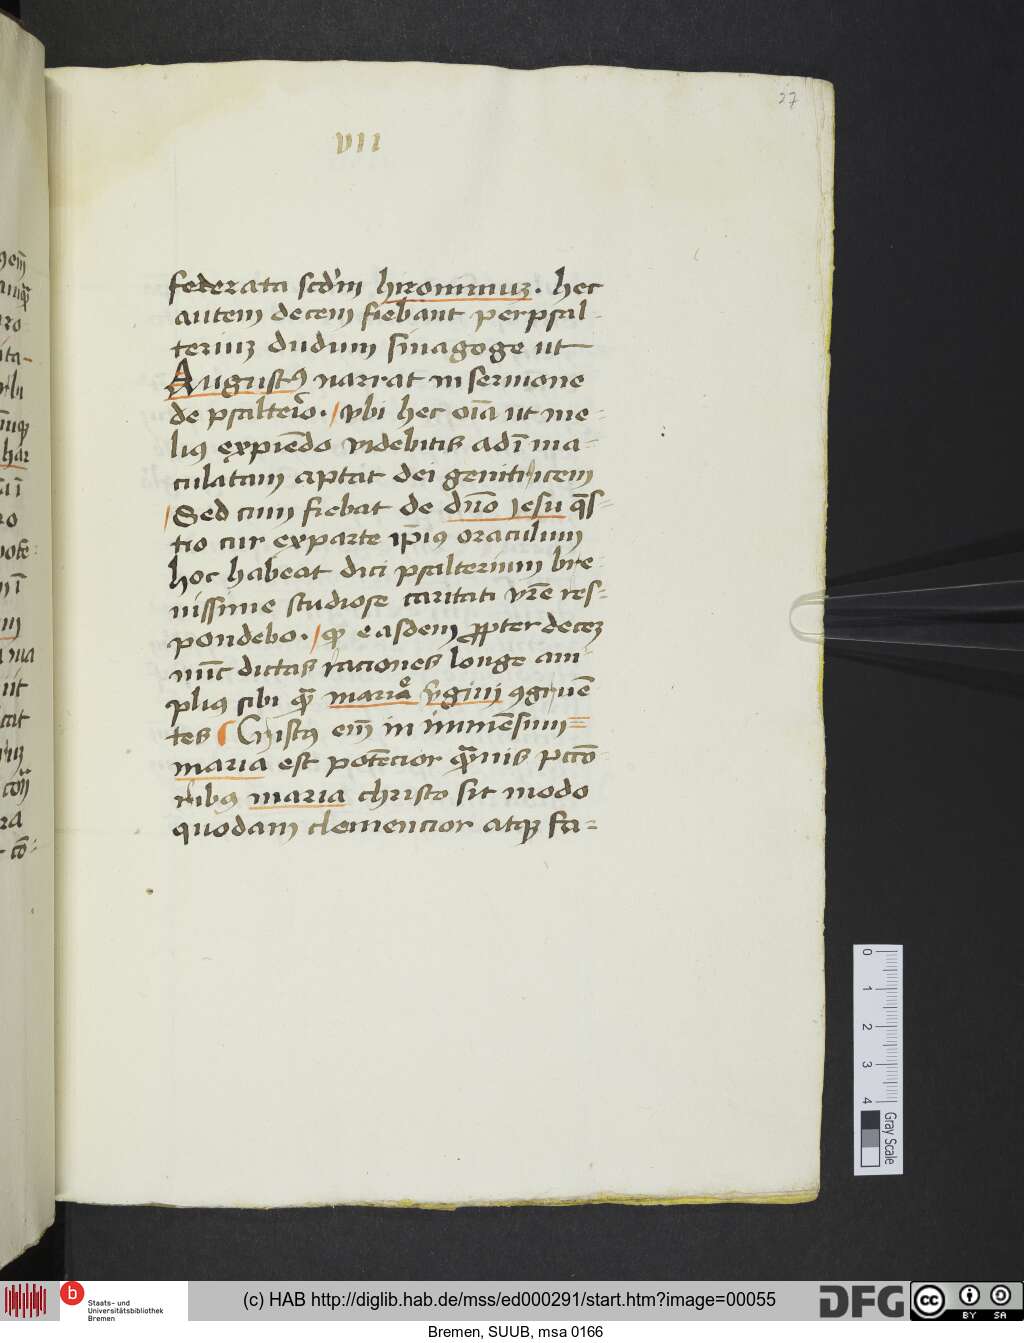 27
VII
federata scd'm hironimuʒ. hec
autem decem fiebant perpsal-
teriuʒ dudum sinagoge ut
Augustꝯ narrat in sermone
de psalterio. / vbi hec oīa ut me-
liꝯ expiēdo videbitis ad ī ma-
culatam aptat dei genitricem
/ Sed cum fiebat de dn̄o Jesu q̄s-
tio cur exparte ip̄iꝯ oraculum
hoc habeat dici psalterium bre-
uissime studiose caritati vr̄e res-
pondebo. / ꝙ easdem ꝓpter deceʒ
nūc dictas raciones longe am-
pliꝯ sibi qᷓ maria v̄gini ꝯgruē
tes Cristꝯ em̄ in immēsum
maria est potēcior qᷓuis pccō
ribꝯ maria christo sit modo
quodam clemencior atqꝫ fa-
0 1 2 3 4
Gray Scale
b
Staats- und
Universitätsbibliothek
Bremen
(c) HAB http://diglib.hab.de/mss/ed000291/start.htm?image=00055
DFG
cc BY SA
Bremen, SUUB, msa 0166